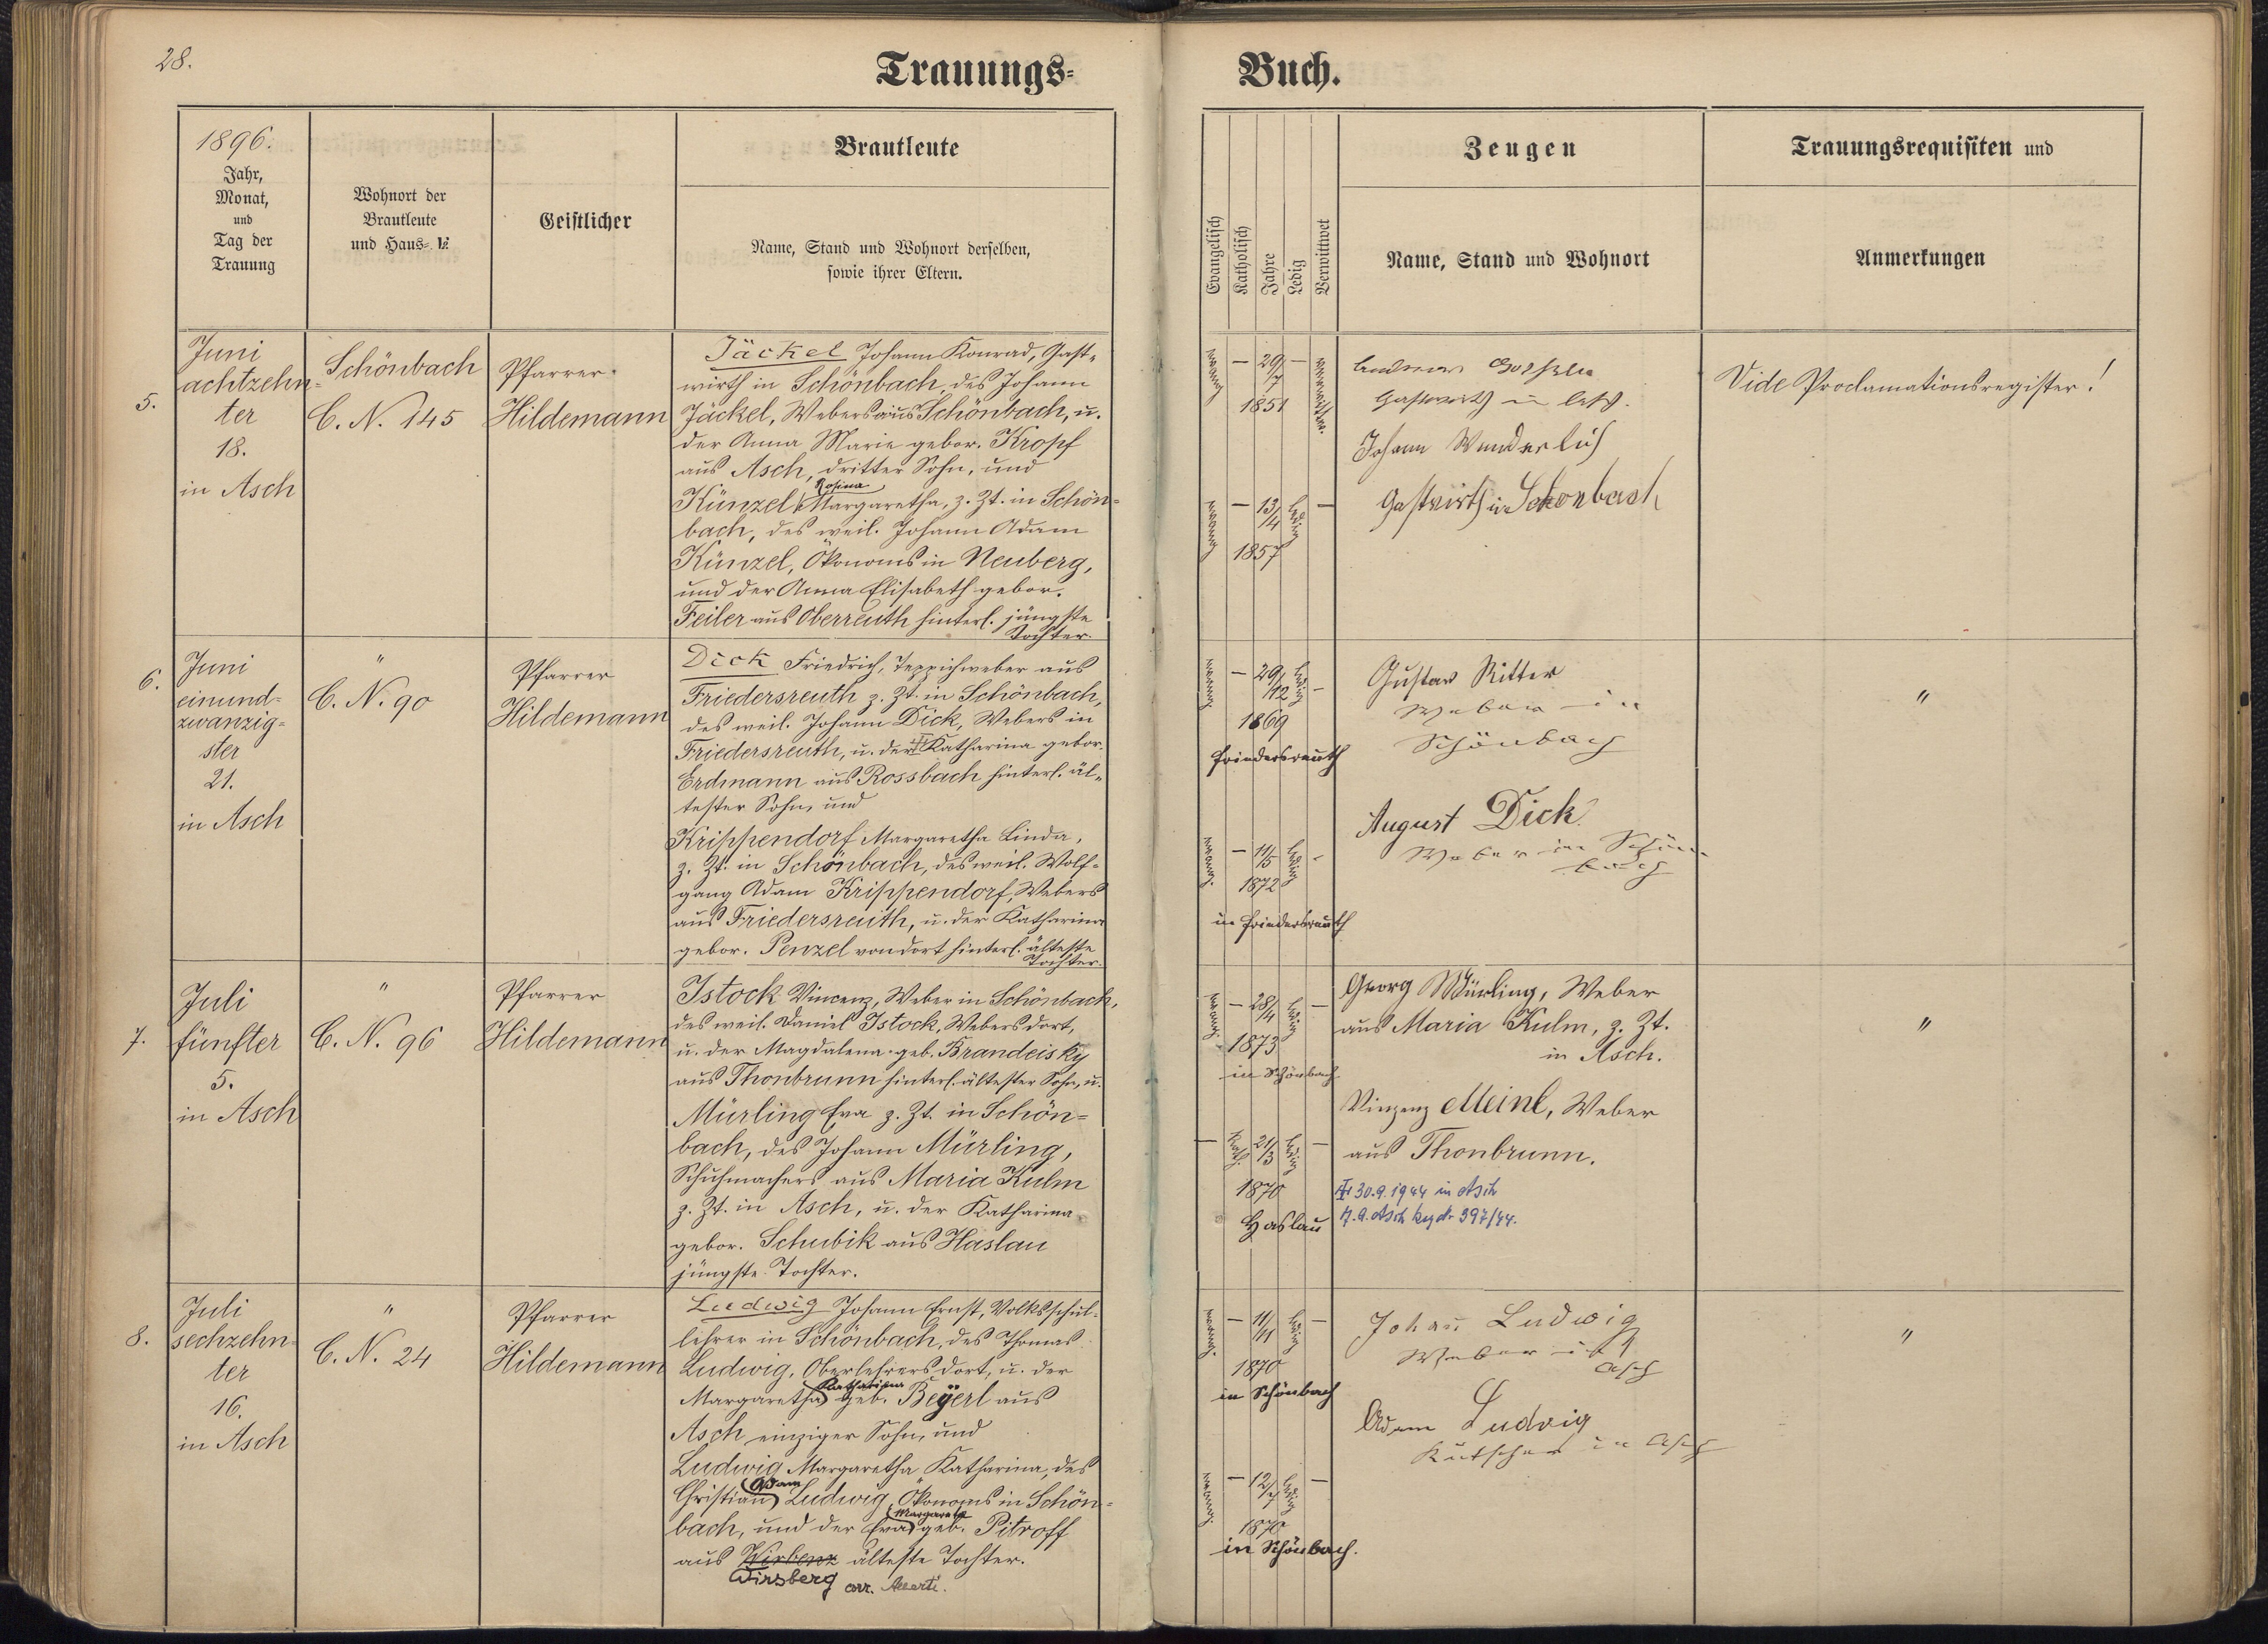 28.
Trauungs-
Buch.
1896.
Jahr,
Monat,
und
Tag der
Trauung
Wohnort der
Brautleute
und Haus-№
Geistlicher
Brautleute
Name, Stand und Wohnort derselben,
sowie ihrer Eltern.
Evangelisch
Katholisch
Jahre
Ledig
Verwittwet
Zeugen
Name, Stand und Wohnort
Trauungsrequisiten und
Anmerkungen
5.
Juni
achtzehn-
ter
18.
in Asch
Schönbach
C. N. 145
Pfarrer
Hildemann
Jäckel Johann Konrad, Gast-
wirth in Schönbach, des Johann
Jäckel, Webers aus Schönbach, u.
der Anna Marie gebor. Kropf
aus Asch, dritter Sohn, und
Rosina
Künzel Margaretha, z. Zt. in Schön-
bach, des weil. Johann Adam
Künzel, Ökonoms in Neuberg,
und der Anna Elisabeth gebor.
Feiler aus Oberreuth hinterl. jüngste
Tochter.
evang.
—
29/7
1851
—
verwittwet.
evang
—
13/4
1857
ledig
—
Andreas
Gastwirth in Asch.
Johann Wunderlich
Gastwirth in Schönbach
Vide Proclamationsregister!
6.
Juni
einund-
zwanzig-
ster
21.
in Asch
"
C. N. 90
Pfarrer
Hildemann
Dick Friedrich, Teppichweber aus
Friedersreuth z. Zt. in Schönbach,
des weil. Johann Dick, Webers in
Friedersreuth, u. der Katharina gebor.
Erdmann aus Rossbach hinterl. äl-
tester Sohn, und
Krippendorf Margaretha Linda,
z. Zt. in Schönbach, des weil. Wolf-
gang Adam Krippendorf, Webers
aus Friedersreuth, u. der Katharina
gebor. Penzel von dort hinterl. älteste
Tochter.
evang.
—
29/12
1869
ledig
—
Friedersreuth
evang.
—
11/5
1872
ledig
-
in Friedersreuth
Gustav Ritter
Weber in
Schönbach
August Dick
Weber in Schön-
bach
"
7.
Juli
fünfter
5.
in Asch
"
C. N. 96
Pfarrer
Hildemann
Istock Vincenz, Weber in Schönbach,
des weil. Daniel Istock, Webers dort,
u. der Magdalena geb. Brandeisky
aus Thonbrunn hinterl. ältester Sohn, u.
Mürling Eva z. Zt. in Schön-
bach, des Johann Mürling,
Schuhmachers aus Maria Kulm
z. Zt. in Asch, u. der Katharina
gebor. Schubik aus Haslau
jüngste Tochter.
evang.
—
28/4
1873
ledig
—
in Schönbach
—
kath.
21/3
1870
ledig
—
Haslau
Georg Mürling, Weber
aus Maria Kulm, z. Zt.
in Asch.
Vinzenz Meinl, Weber
aus Thonbrunn.
30.9.1944 in Asch
Asch 397/44.
"
8.
Juli
sechzehn-
ter
16.
in Asch
"
C. N. 24
Pfarrer
Hildemann
Ludwig Johann Ernst, Volksschul-
lehrer in Schönbach, des Thomas
Ludwig, Oberlehrers dort, u. der
Katharina
Margaretha geb. Beyerl aus
Asch einziger Sohn, und
Ludwig Margaretha Katharina, des
Adam
Christian Ludwig, Ökonoms in Schön-
Margareta
bach, und der Eva geb. Pitroff
aus Wirbenz älteste Tochter.
Wirsberg corr.
evang.
—
11/11
1870
ledig
—
in Schönbach
evang.
—
12/7
1870
ledig
—
in Schönbach.
Johann Ludwig
Weber in
Asch
Adam Ludwig
Kutscher in Asch
"